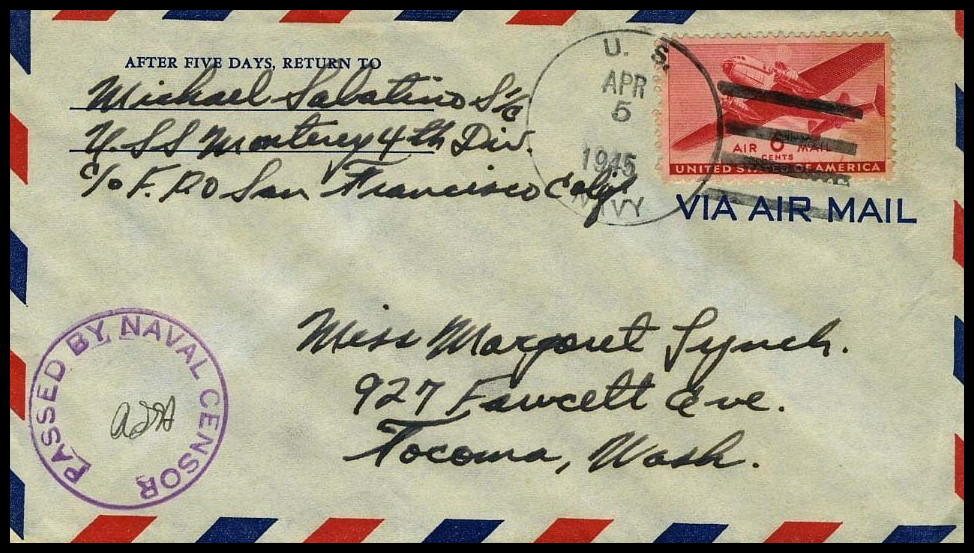 AFTER FIVE DAYS, RETURN TO
Michael Sabatino S1/c
U.S.S Monterey 4th Div.
c/o F.P.O San Francisco Calif
U. S.
APR
5
1945
NAVY
AIR 6 MAIL
CENTS
UNITED STATES OF AMERICA
VIA AIR MAIL
Miss Margaret Lynch.
927 Fawcett Ave.
Tacoma, Wash.
PASSED BY NAVAL CENSOR